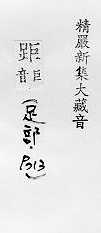 精嚴新集大藏音
距 巨
音
(足部·313)